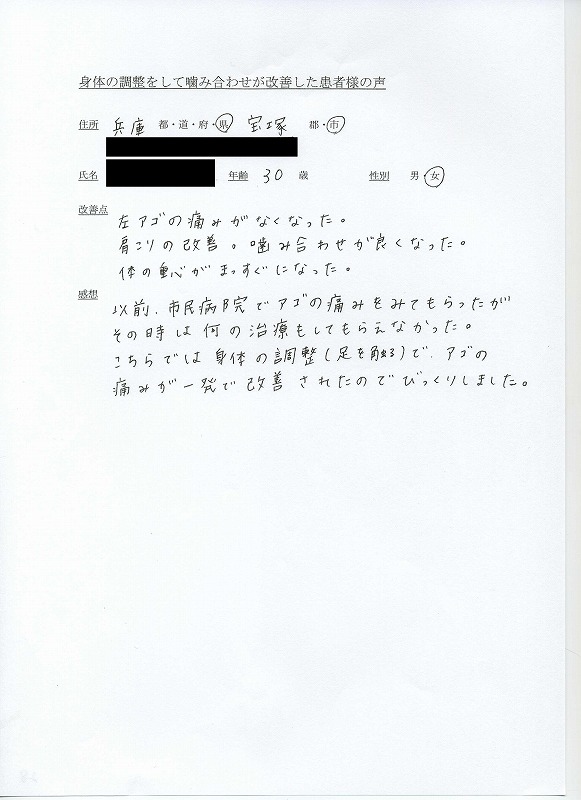 身体の調整をして噛み合わせが改善した患者様の声
住所 兵庫 都・道・府・県 宝塚 郡・市
氏名 年齢 30 歳 性別 男・女
改善点
左アゴの痛みがなくなった。
肩こりの改善。噛み合わせが良くなった。
体の重心がまっすぐになった。
感想
以前、市民病院でアゴの痛みをみてもらったが
その時は何の治療もしてもらえなかった。
こちらでは身体の調整(足を触る)で、アゴの
痛みが一発で改善されたのでびっくりしました。